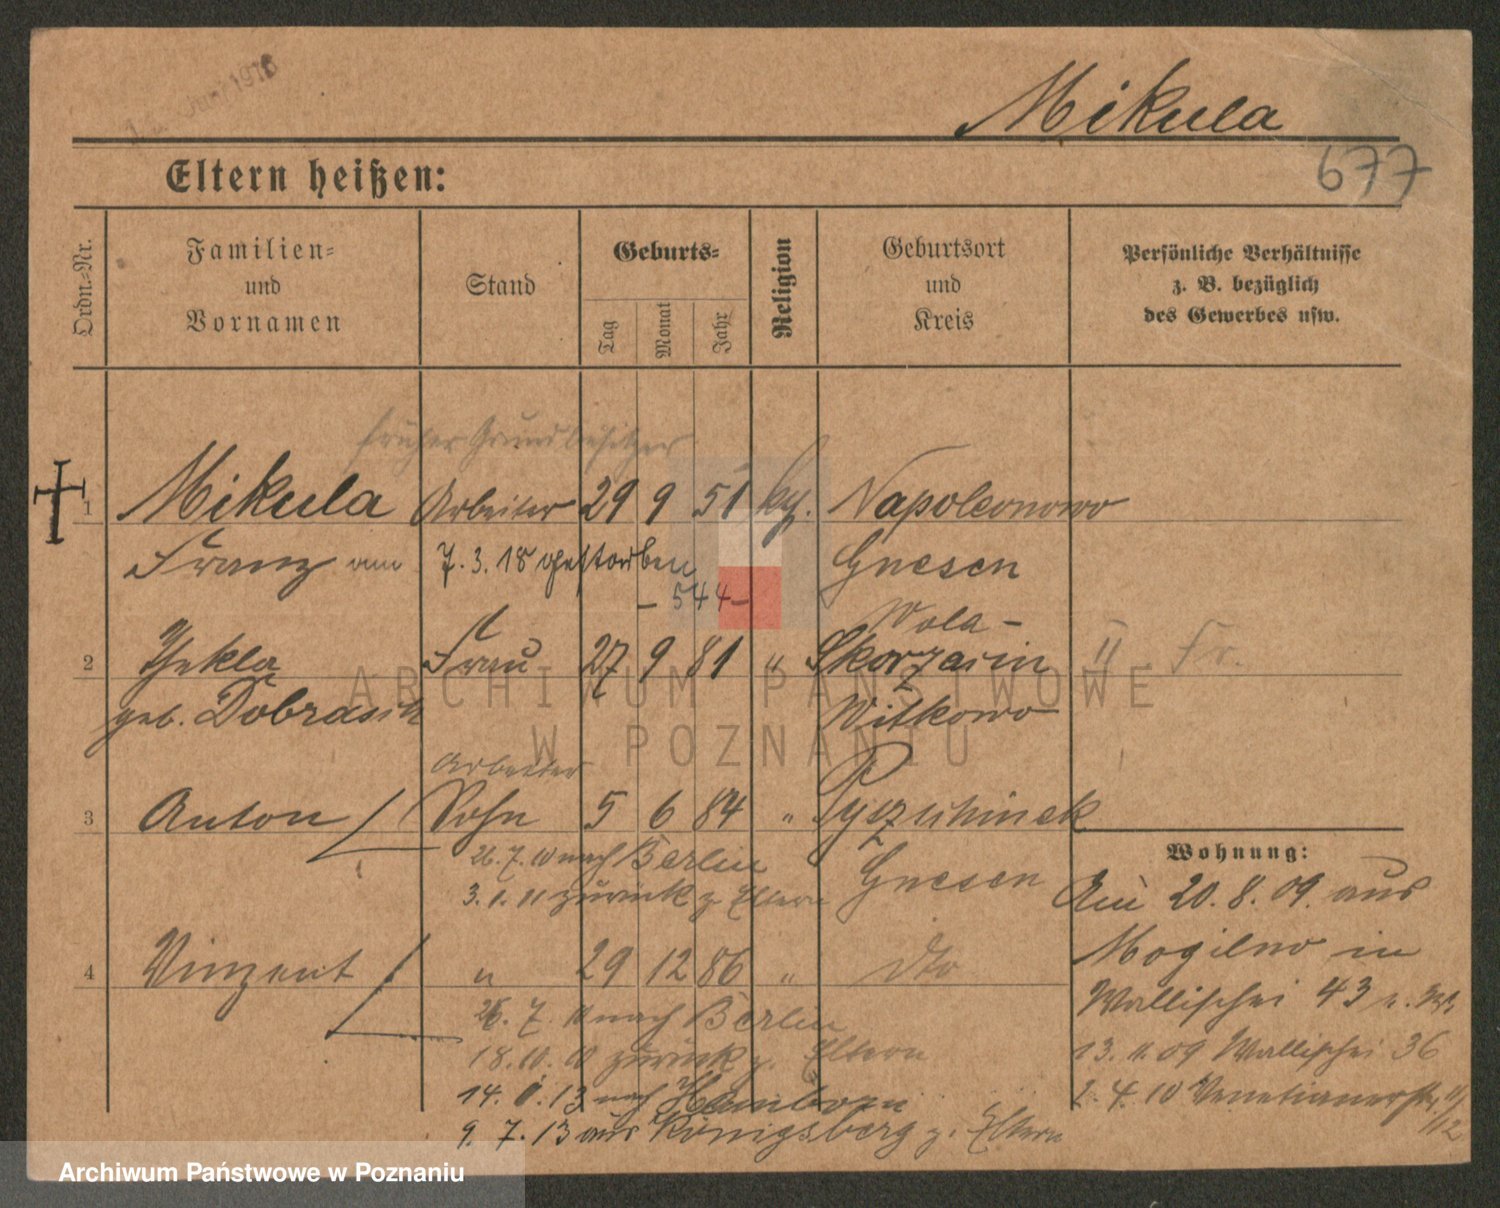 Juni 1918
Mikula
677
Eltern heißen:
Ordn.-Nr.
Familien-
und
Vornamen
Stand
Geburts-
Tag
Monat
Jahr
Religion
Geburtsort
und
Kreis
Persönliche Verhältnisse
z. B. bezüglich
des Gewerbes usw.
früher Grundbesitzer
1 Mikula Arbeiter 29 9 51 Napoleonowo
Franz am 7. 3. 18 gestorben Gnesen
– 544 –
Wola –
2 Thekla Frau 27 9 81 " Skorzencin " Fr.
geb. Dobrasik Witkowo
Arbeiter
3 Anton Sohn 5 6 84 "
26. 7. 10 nach Berlin Gnesen
3. 1. 11 zurück z. Eltern
4 Vinzent " 29 12 86 " dto
26. 7. 10 nach Berlin
18. 10. 10 zurück z. Eltern
14. 6. 13 nach Hamborn
9. 7. 13 aus Königsberg z. Eltern
Wohnung:
Am 20. 8. 09. aus
Mogilno in
Wallischei 43
13. 11. 09 Wallischei 36
2. 4. 10 Venetianerstr. 11/12
ARCHIWUM PAŃSTWOWE
W POZNANIU
Archiwum Państwowe w Poznaniu